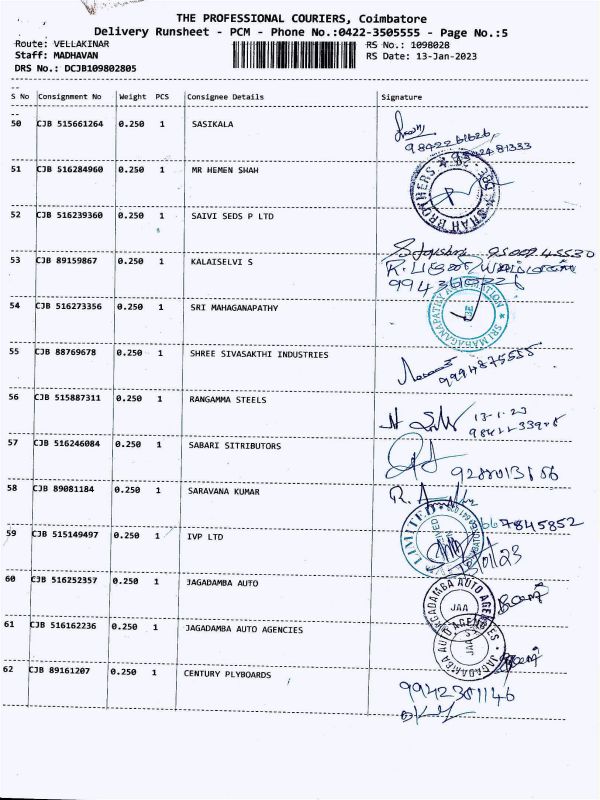 THE PROFESSIONAL COURIERS, Coimbatore
Delivery Runsheet - PCM - Phone No.:0422-3505555 - Page No.:5
Route: VELLAKINAR RS No.: 1098028
Staff: MADHAVAN RS Date: 13-Jan-2023
DRS No.: DCJB109802805
S No Consignment No Weight PCS Consignee Details Signature
50 CJB 515661264 0.250 1 SASIKALA
51 CJB 516284960 0.250 1 MR HEMEN SHAH
SHAH BROTHERS
52 CJB 516239360 0.250 1 SAIVI SEDS P LTD
53 CJB 89159867 0.250 1 KALAISELVI S
54 CJB 516273356 0.250 1 SRI MAHAGANAPATHY
SRI MAHAGANAPATHY
55 CJB 88769678 0.250 1 SHREE SIVASAKTHI INDUSTRIES
9994875555
56 CJB 515887311 0.250 1 RANGAMMA STEELS
13-1-23
57 CJB 516246084 0.250 1 SABARI SITRIBUTORS
58 CJB 89081184 0.250 1 SARAVANA KUMAR
59 CJB 515149497 0.250 1 IVP LTD
LIMITED
60 CJB 516252357 0.250 1 JAGADAMBA AUTO
JAGADAMBA AUTO AGENCIES
JAA
61 CJB 516162236 0.250 1 JAGADAMBA AUTO AGENCIES
JAGADAMBA AUTO AGENCIES
JAA
62 CJB 89161207 0.250 1 CENTURY PLYBOARDS
9942381146